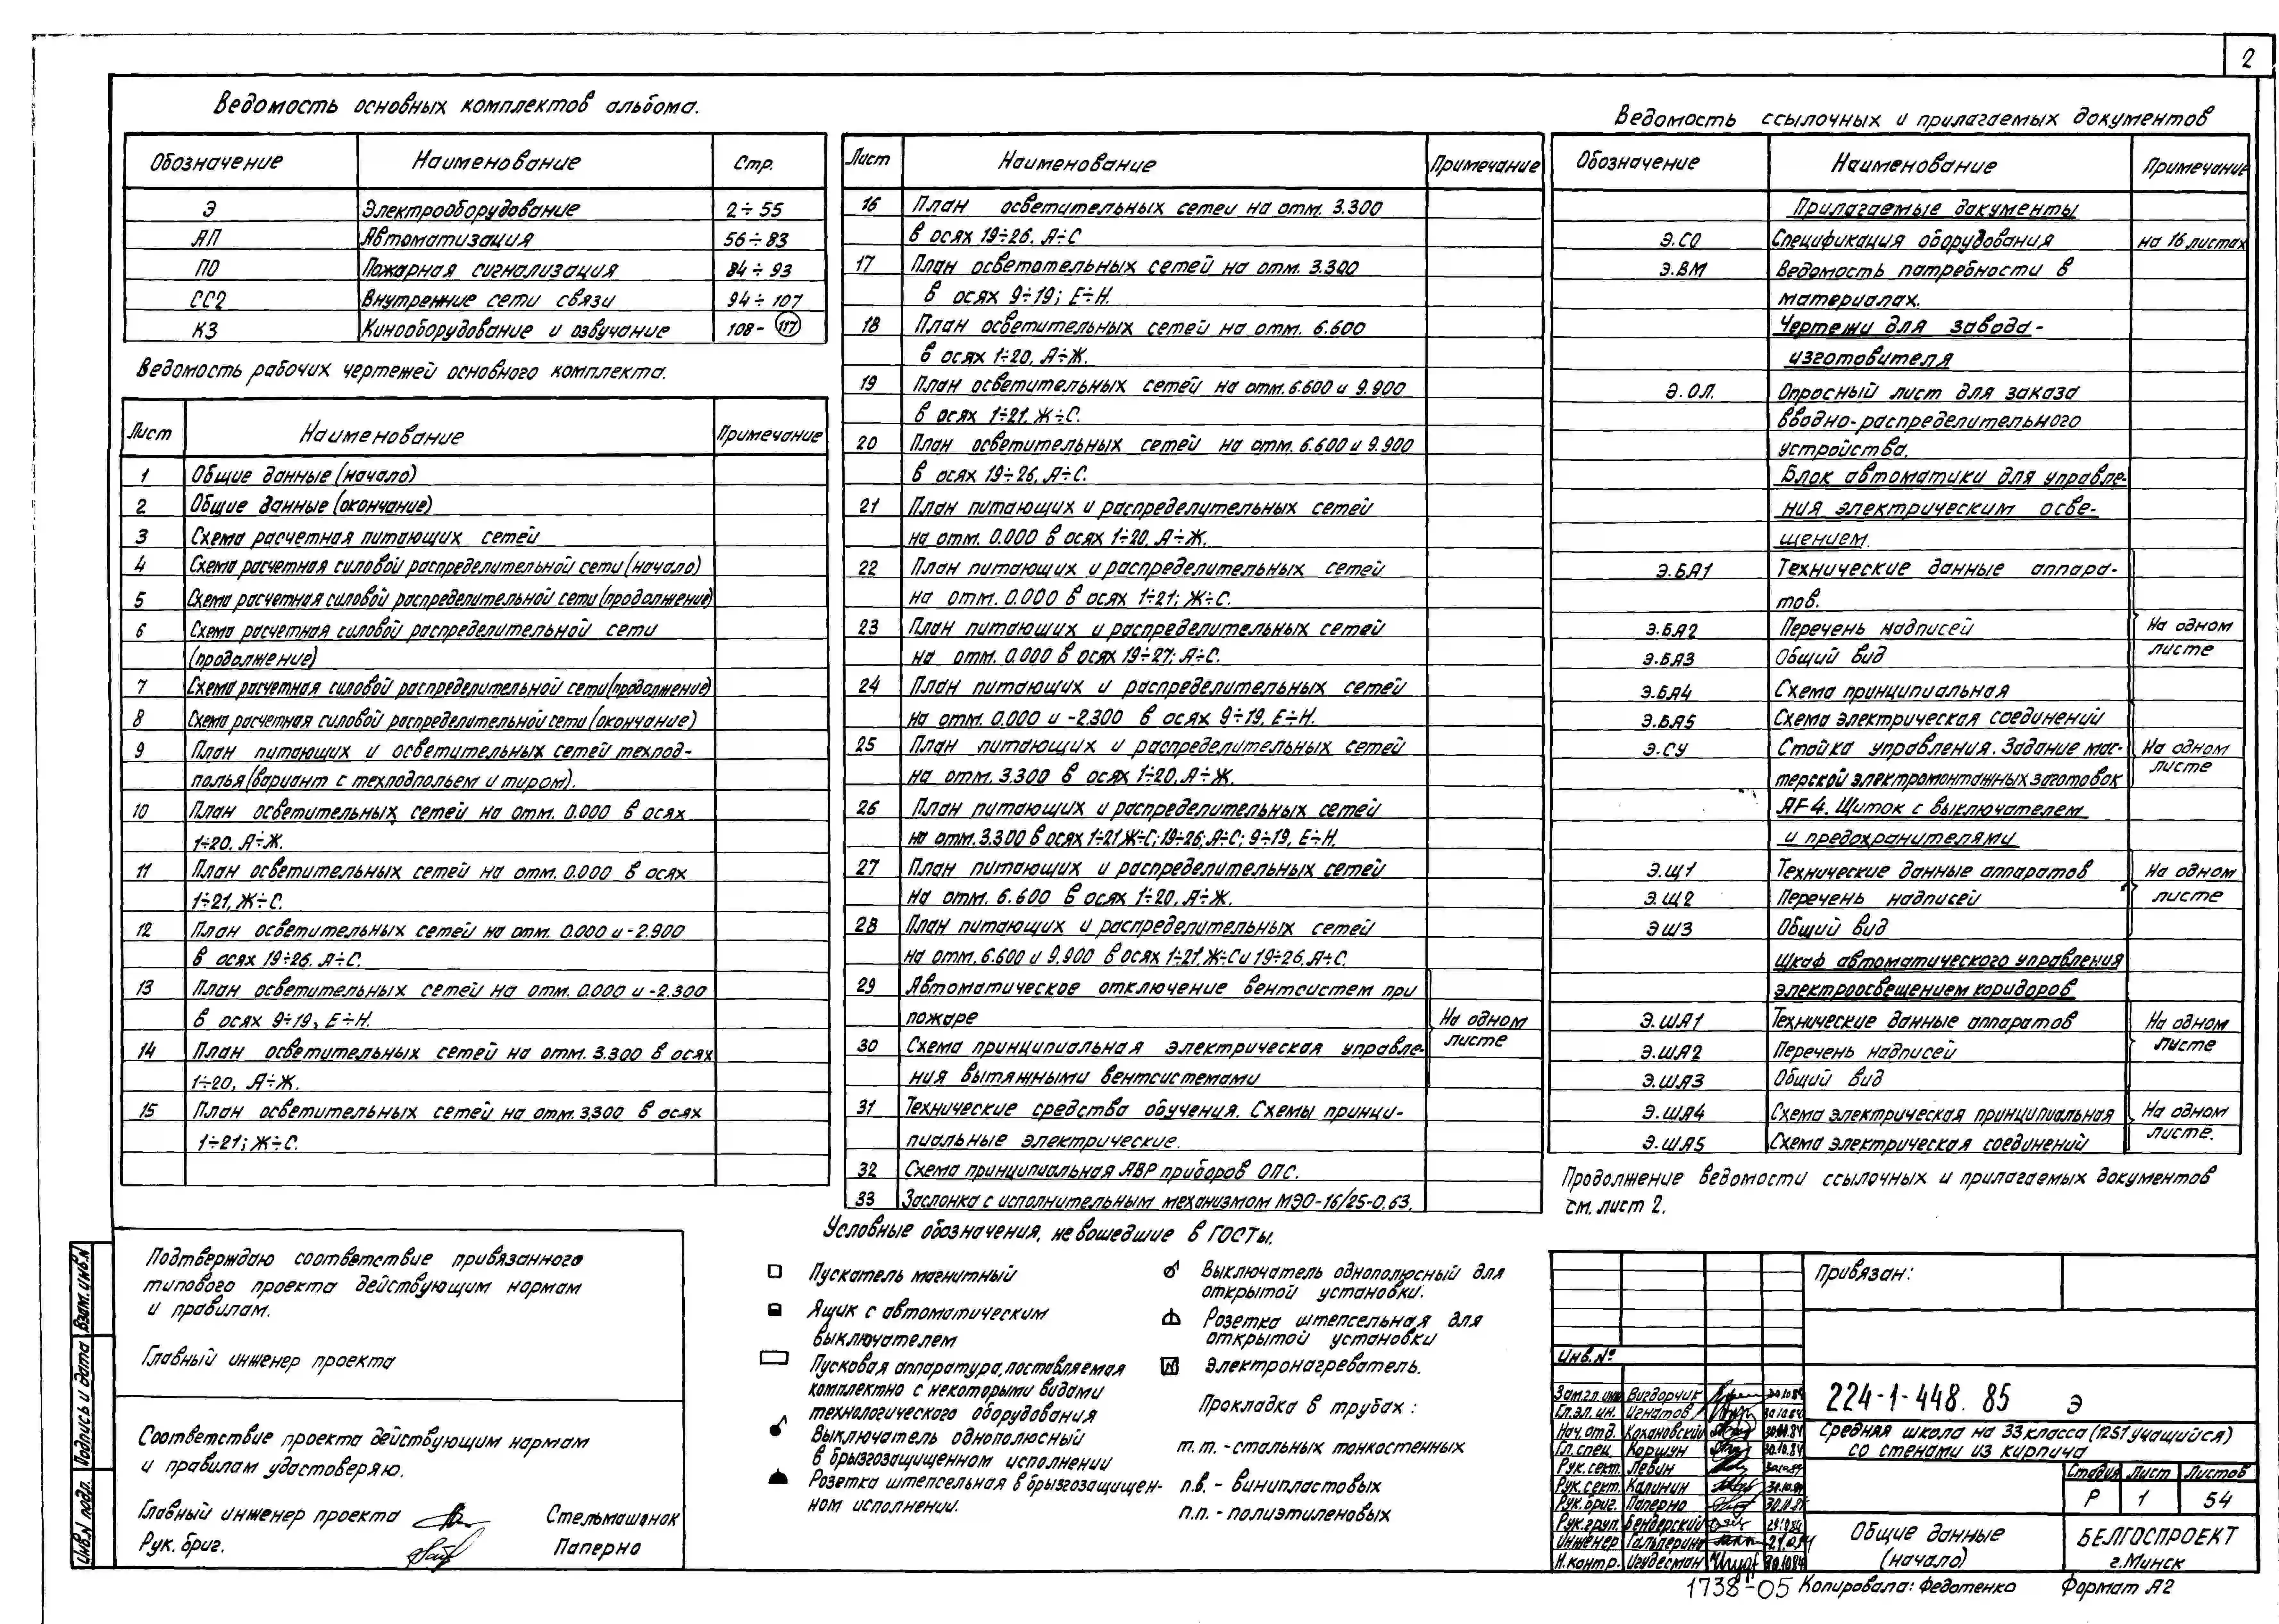 2
Ведомость основных комплектов альбома.
Обозначение Наименование Стр.
Э Электрооборудование 2÷55
АП Автоматизация 56÷83
ПО Пожарная сигнализация 84÷93
СС2 Внутренние сети связи 94÷107
КЗ Кинооборудование и озвучание 108- 117
Ведомость рабочих чертежей основного комплекта.
Лист Наименование Примечание
1 Общие данные (начало)
2 Общие данные (окончание)
3 Схема расчетная питающих сетей
4 Схема расчетная силовой распределительной сети (начало)
5 Схема расчетная силовой распределительной сети (продолжение)
6 Схема расчетная силовой распределительной сети
(продолжение)
7 Схема расчетная силовой распределительной сети (продолжение)
8 Схема расчетная силовой распределительной сети (окончание)
9 План питающих и осветительных сетей технод-
полья (вариант с техподпольем и тиром).
10 План осветительных сетей на отм. 0.000 в осях
1÷20, А÷Ж.
11 План осветительных сетей на отм. 0.000 в осях
1÷21, Ж÷С.
12 План осветительных сетей на отм. 0.000 и -2.900
в осях 19÷26. А÷С.
13 План осветительных сетей на отм. 0.000 и -2.300
в осях 9÷19, Е÷Н.
14 План осветительных сетей на отм. 3.300 в осях
1÷20, А÷Ж.
15 План осветительных сетей на отм. 3300 в осях
1÷21; Ж÷С.
Лист Наименование Примечание
16 План осветительных сетей на отм. 3.300
в осях 19÷26. А÷С
17 План осветотельных сетей на отм. 3.300
в осях 9÷19; Е÷Н.
18 План осветительных сетей на отм. 6.600
в осях 1÷20, А÷Ж.
19 План осветительных сетей на отм. 6.600 и 9.900
в осях 1÷21, Ж÷С.
20 План осветительных сетей на отм. 6.600 и 9.900
в осях 19÷26, А÷С.
21 План питающих и распределительных сетей
на отм. 0.000 в осях 1÷20, А÷Ж.
22 План питающих и распределительных сетей
на отм. 0.000 в осях 1÷21; Ж÷С.
23 План питающих и распределительных сетей
на отм. 0.000 в осях 19÷27; А÷С.
24 План питающих и распределительных сетей
на отм. 0.000 и -2.300 в осях 9÷19, Е÷Н.
25 План питающих и распределительных сетей
на отм. 3.300 в осях 1÷20, А÷Ж.
26 План питающих и распределительных сетей
на отм. 3.300 в осях 1÷21 Ж÷С; 19÷26; А÷С; 9÷19, Е÷Н.
27 План питающих и распределительных сетей
на отм. 6.600 в осях 1÷20, А÷Ж.
28 План питающих и распределительных сетей
на отм. 6.600 и 9.900 в осях 1÷21, Ж÷С и 19÷26, А÷С.
29 Автоматическое отключение вентсистем при
пожаре На одном
30 Схема принципиальная электрическая управле- листе
ния вытяжными вентсистемами
31 Технические средства обучения. Схемы принци-
пиальные электрические.
32 Схема принципиальная АВР приборов ОПС.
33 Заслонка с исполнительным механизмом МЭО-16/25-0.63.
Ведомость ссылочных и прилагаемых документов
Обозначение Наименование Примечание
Прилагаемые документы
Э.СО Спецификация оборудования на 16 листах
Э.ВМ Ведомость потребности в
материалах.
Чертежи для завода-
изготовителя
Э.ОЛ. Опросный лист для заказа
вводно-распределительного
устройства.
Блок автоматики для управле-
ния электрическим осве-
щением.
Э.БА1 Технические данные аппара-
тов.
Э.БА2 Перечень надписей На одном
Э.БА3 Общий вид листе
Э.БА4 Схема принципиальная
Э.БА5 Схема электрическая соединений
Э.СУ Стойка управления. Задание мас- На одном
терской электромонтажных заготовок листе
ЯF4. Щиток с выключателем
и предохранителями
Э.Щ1 Технические данные аппаратов На одном
Э.Щ2 Перечень надписей листе
ЭЩ3 Общий вид
Шкаф автоматического управления
электроосвещением коридоров
Э.ША1 Технические данные аппаратов На одном
Э.ША2 Перечень надписей листе
Э.ША3 Общий вид
Э.ША4 Схема электрическая принципиальная На одном
Э.ША5 Схема электрическая соединений листе.
Продолжение ведомости ссылочных и прилагаемых документов
см. лист 2.
Подтверждаю соответствие привязанного
типового проекта действующим нормам
и правилам.
Главный инженер проекта
Соответствие проекта действующим нормам
и правилам удостоверяю.
Главный инженер проекта Стельмашонок
Рук. бриг. Паперно
Взам. инв. N
Подпись и дата
Инв. N подл.
Условные обозначения, не вошедшие в ГОСТы.
Пускатель магнитный
Ящик с автоматическим
выключателем
Пусковая аппаратура, поставляемая
комплектно с некоторыми видами
технологического оборудования
Выключатель однополюсный
в брызгозащищенном исполнении
Розетка штепсельная в брызгозащищен-
ном исполнении.
Выключатель однополюсный для
открытой установки.
Розетка штепсельная для
открытой установки
Электронагреватель.
Прокладка в трубах:
т.т. - стальных тонкостенных
п.в. - винипластовых
п.п. - полиэтиленовых
Привязан:
Инв. №
Зам.гл.инж Вигдорчик 30.10.84
Гл.эл.ин. Игнатов 30.10.84
Нач.отд. Кохановский 30.10.84
Гл. спец. Коршун 30.10.84
Рук. сект. Левин 30.10.84
Рук. сект. Калинин 30.10.84
Рук. бриг. Паперно 30.10.84
Рук. груп. Бендерский 29.10.84
Инженер Гальперина 29.10.84
Н. контр. Игудесман 30.10.84
224-1-448. 85 Э
Средняя школа на 33 класса (1251 учащийся)
со стенами из кирпича
Стадия Лист Листов
Р 1 54
Общие данные
(начало)
БЕЛГОСПРОЕКТ
г. Минск
1738-05 Копировала: Федотенко Формат А2